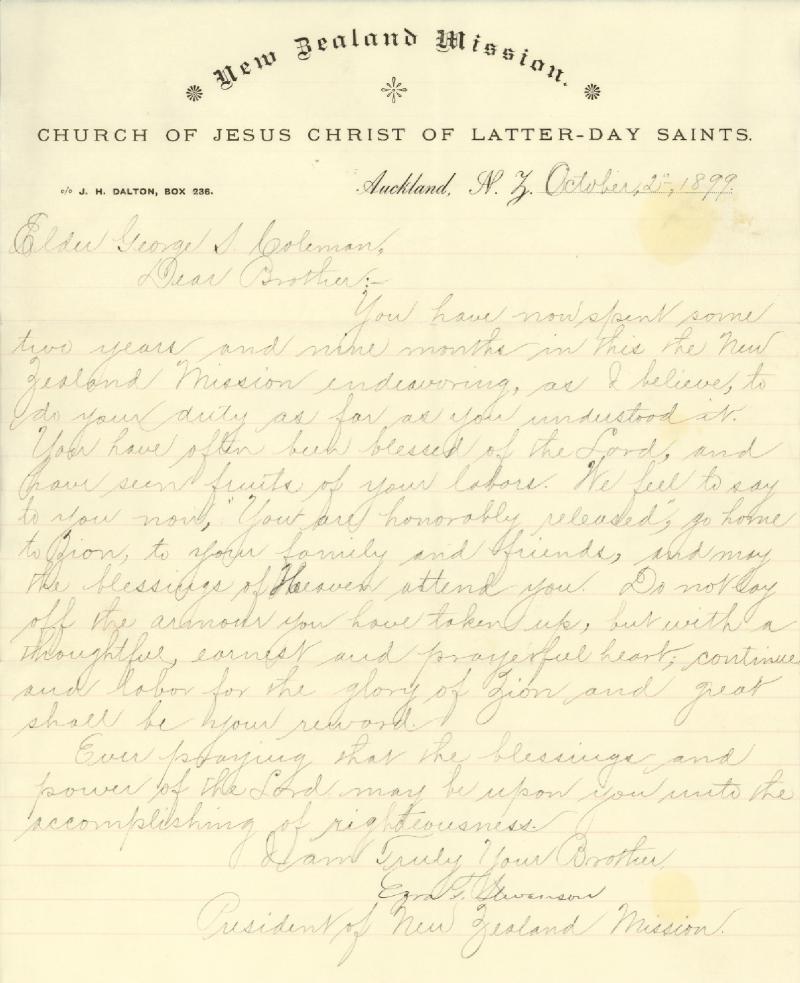 New Zealand Mission.
CHURCH OF JESUS CHRIST OF LATTER-DAY SAINTS.
c/o J. H. DALTON, BOX 236.
Auckland, N. Z. October, 2nd, 1899.
Elder George S. Coleman,
Dear Brother:-
You have now spent some
two years and nine months in this the New
Zealand Mission endeavoring, as I believe, to
do your duty as far as you understood it.
You have often been blessed of the Lord, and
have seen fruits of your labors. We feel to say
to you now, "You are honorably released", go home
to Zion, to your family and friends, and may
the blessings of Heaven attend you. Do not lay
off the armour you have taken up, but with a
thoughtful, earnest and prayerful heart; continue
and labor for the glory of Zion and great
shall be your reward.
Ever praying that the blessings and
power of the Lord may be upon you unto the
accomplishing of righteousness.
I am Truly Your Brother,
Ezra T. Stevenson
President of New Zealand Mission.